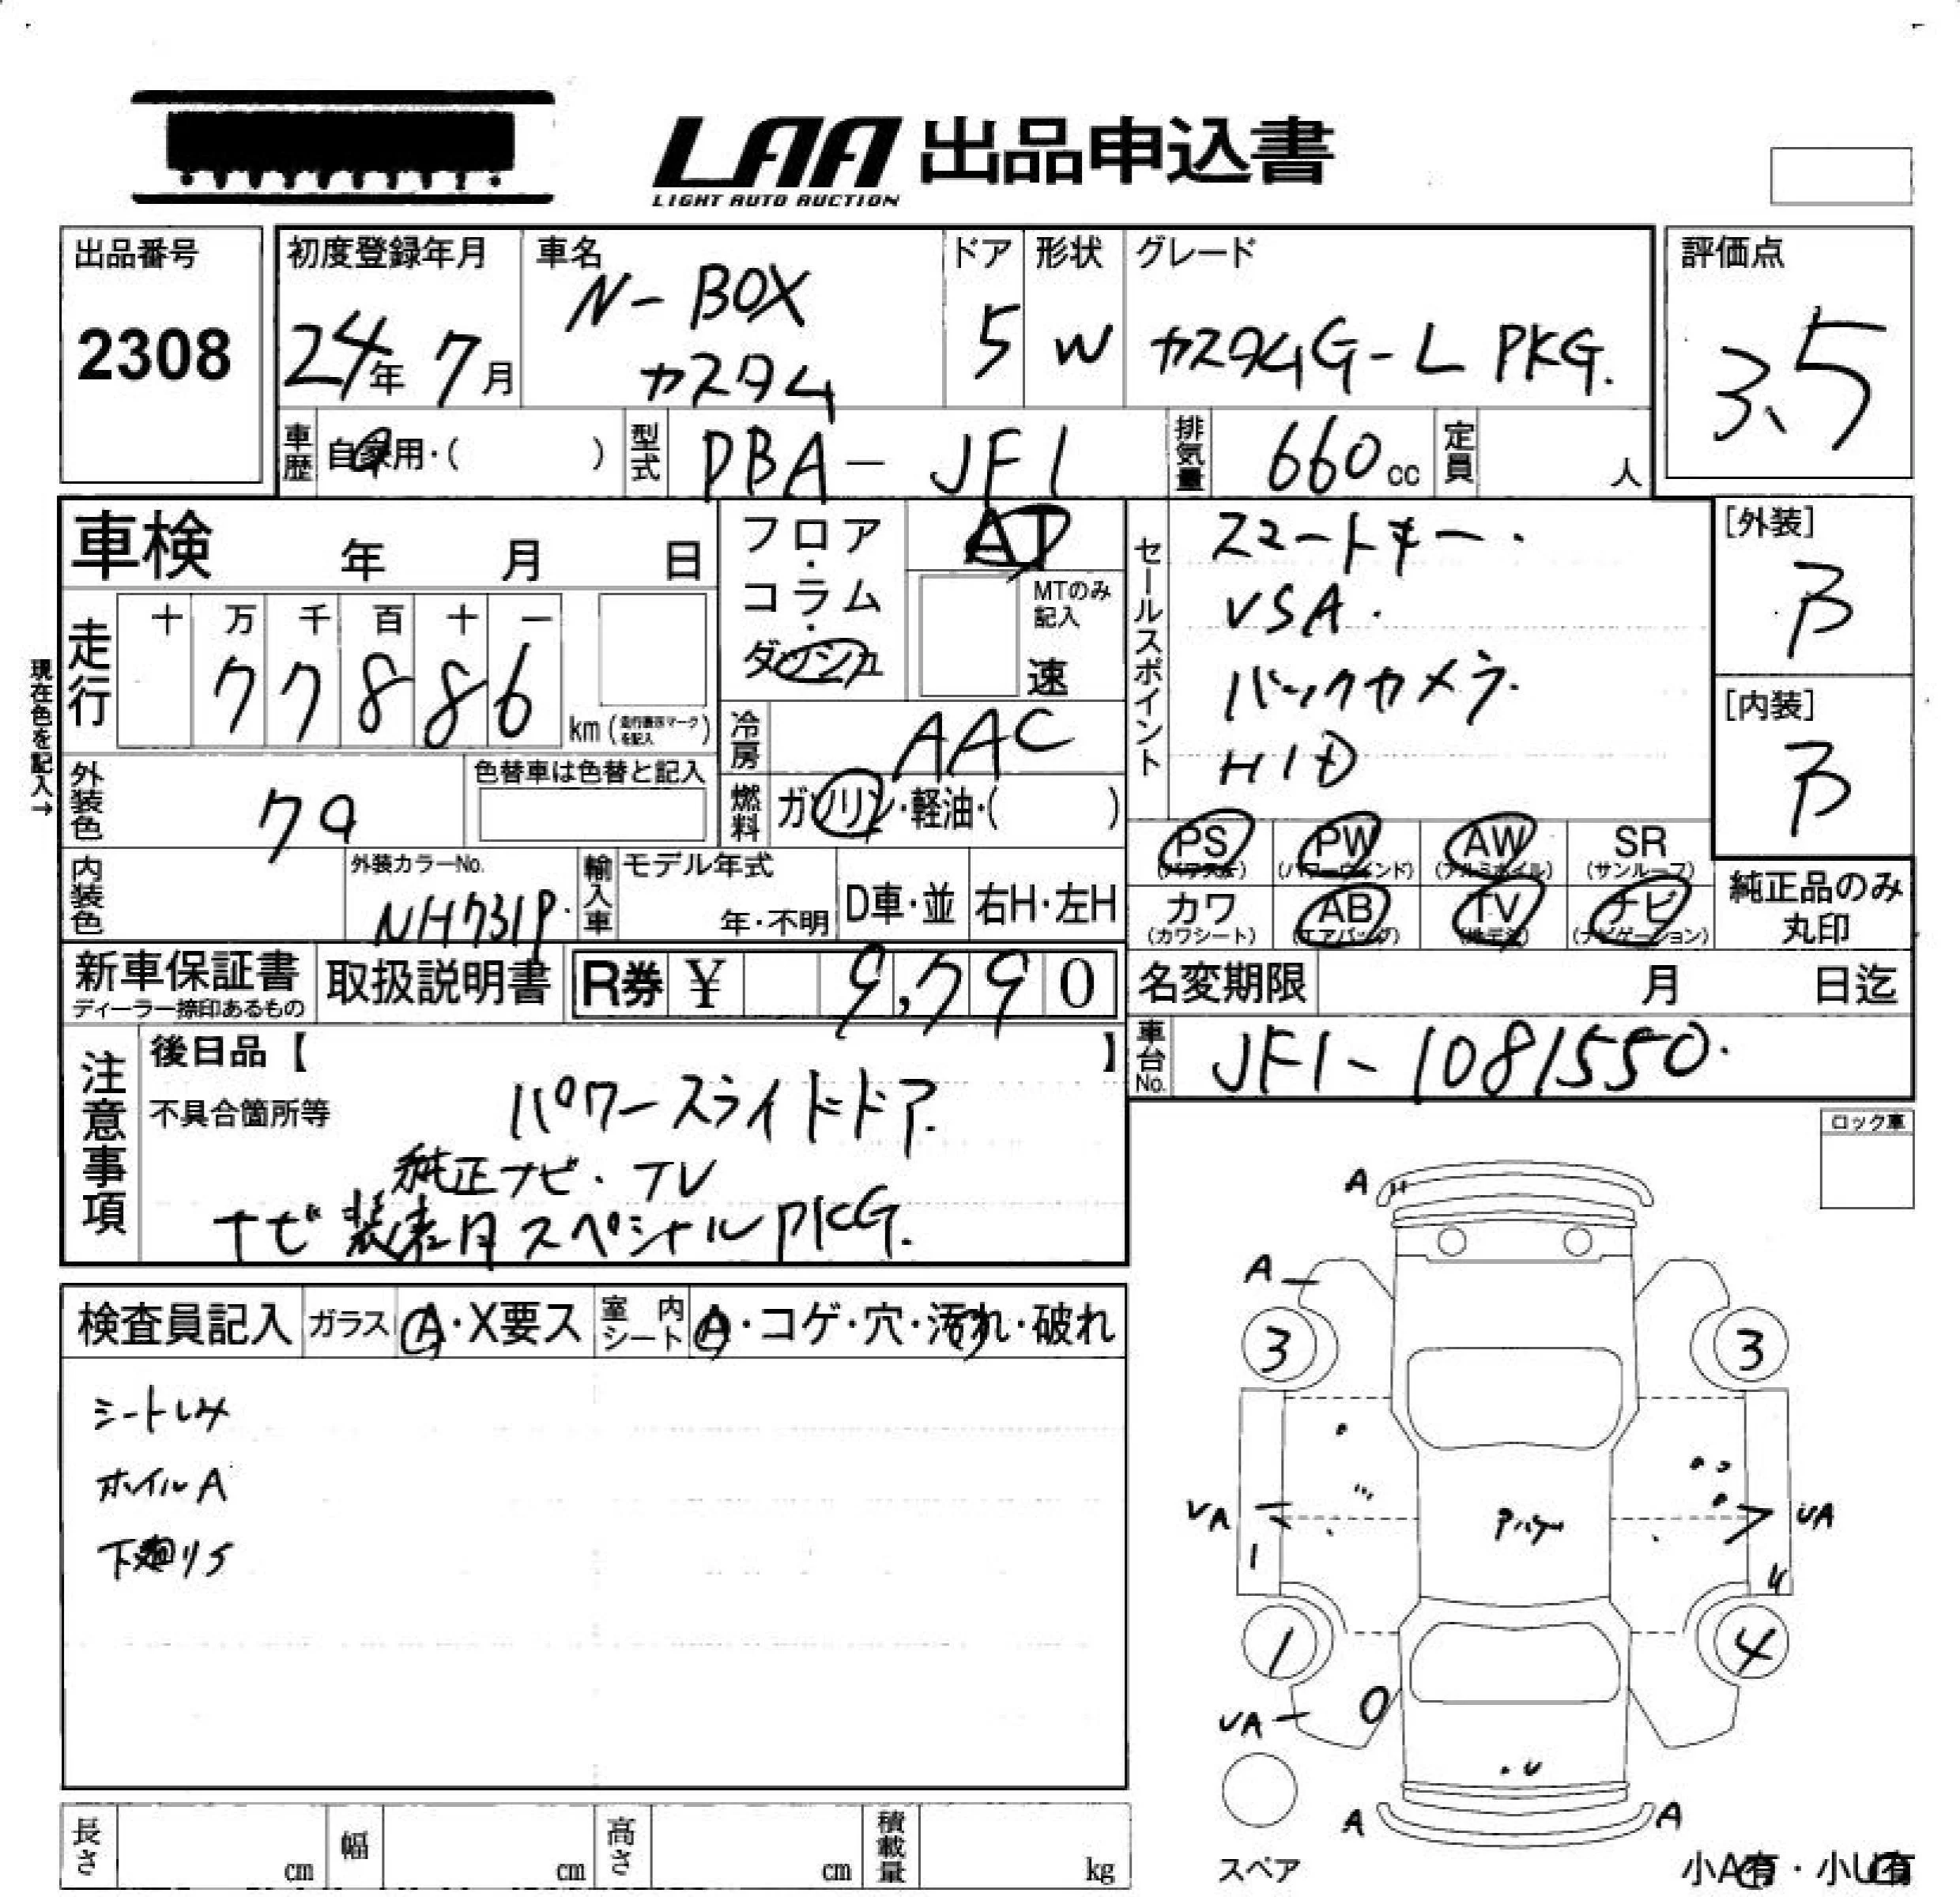 LAA 出品申込書
LIGHT AUTO AUCTION
出品番号
2308
初度登録年月
24年 7月
車名
N-BOX
カスタム
ドア
5
形状
W
グレード
カスタムG-L PKG.
評価点
3.5
車歴 自家用・( )
型式 DBA-JF1
排気量 660cc
定員 人
車検 年 月 日
走行
十 万 千 百 十 一
77886
km (走行表示マークを記入)
現在色を記入→
フロア・コラム・ダッシュ
AT
MTのみ記入
速
冷房 AAC
燃料 ガソリン・軽油・( )
セールスポイント
スマートキー.
VSA.
バックカメラ.
HID
[外装]
B
[内装]
B
外装色 クロ
色替車は色替と記入
内装色
外装カラーNo.
NH731P.
輸入車
モデル年式
年・不明
D車・並
右H・左H
PS (パワステ)
PW (パワーウインド)
AW (アルミホイル)
SR (サンルーフ)
カワ (カワシート)
AB (エアバッグ)
TV (地デジ)
ナビ (ナビゲーション)
純正品のみ
丸印
新車保証書
ディーラー捺印あるもの
取扱説明書
R券 ¥ 9,790
名変期限 月 日迄
車台No. JF1-1081550.
注意事項
後日品【 】
不具合箇所等
パワースライドドア.
純正ナビ.TV
ナビ装着用スペシャルPKG.
ロック車
検査員記入
ガラス A・X要ス
室内シート A・コゲ・穴・汚れ・破れ
シートしみ
ホイルA
下廻りS
A
A
3
3
UA
UA
1
U
1
4
UA
U
A
A
スペア
小A有・小U有
長さ cm
幅 cm
高さ cm
積載量 kg